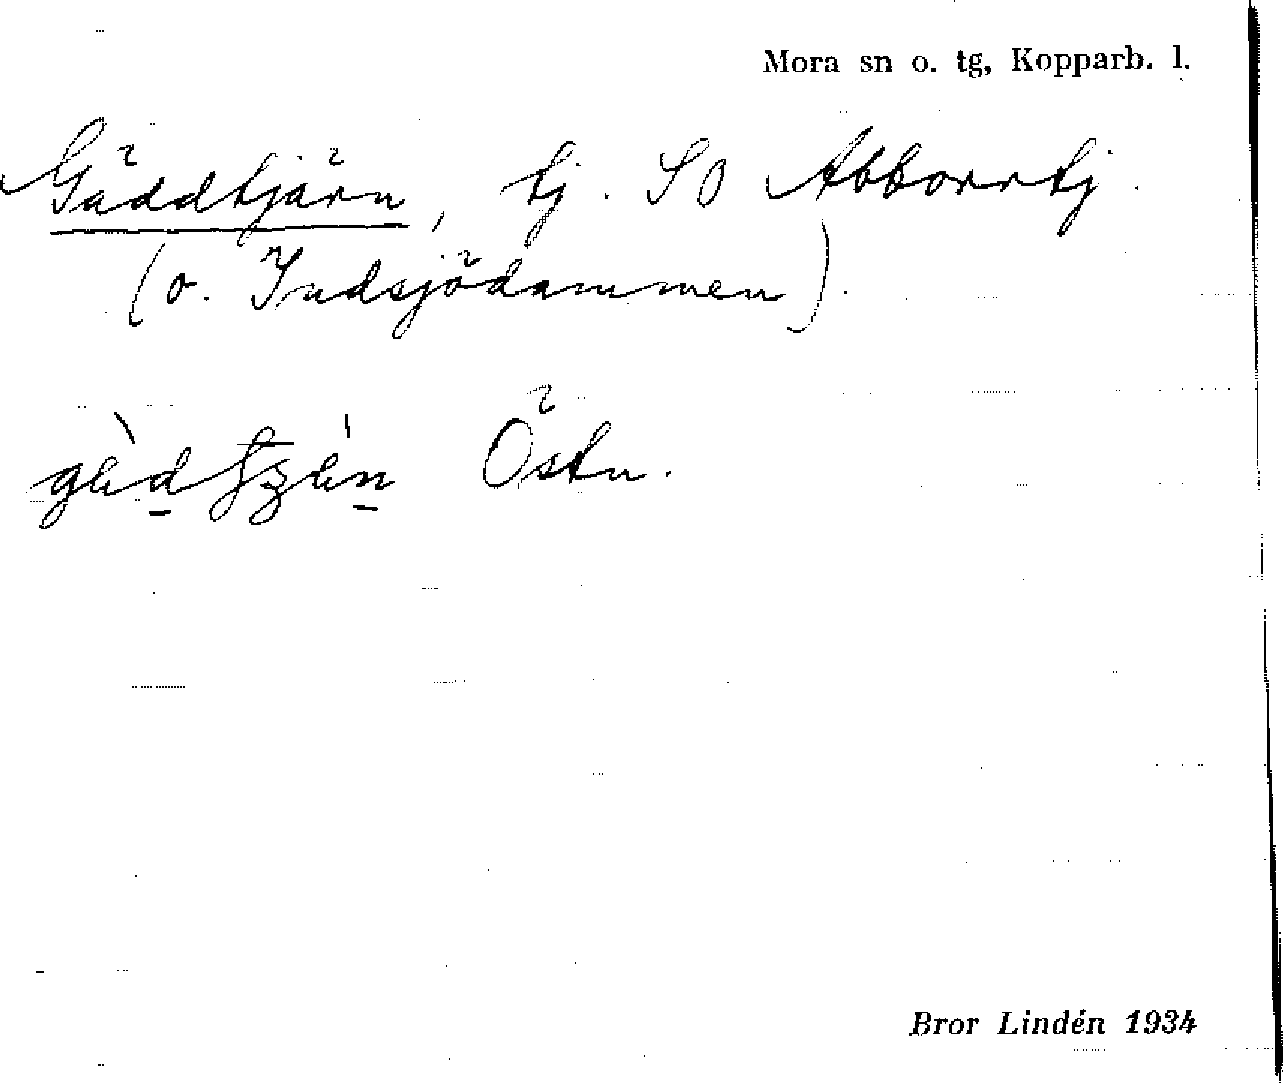 Mora sn o. tg, Kopparb. l.
Gäddtjärn, tj. SO Abborrtj.
(o. Indsjödammen).
Östn.
Bror Lindén 1934